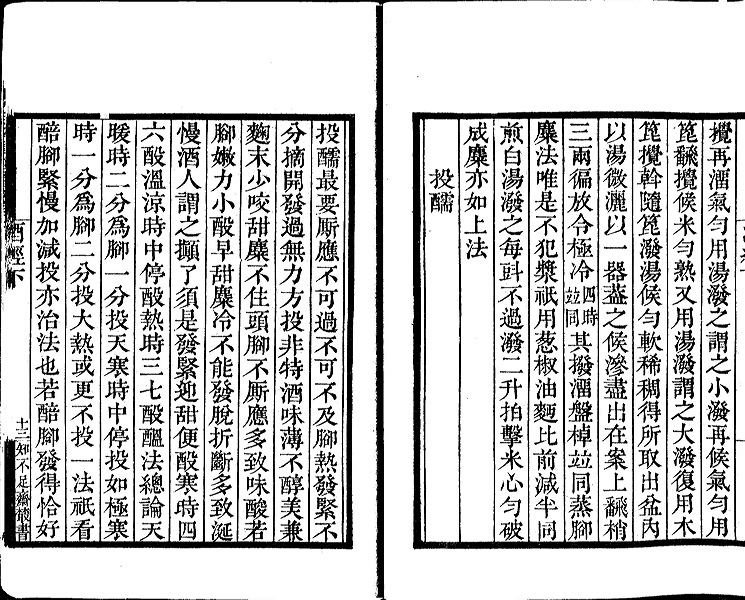 攪再溜氣勻用湯潑之謂之小潑再候氣勻用
篦飜攪候米勻熟又用湯潑謂之大潑復用木
篦攪斡隨篦潑湯候勻軟稀稠得所取出盆內
以湯微灑以一器葢之候滲盡出在案上飜梢
三兩徧放令極冷四時並同其撥溜盤棹並同蒸腳
麋法唯是不犯漿秖用葱椒油麪比前減半同
煎白湯潑之每㪷不過潑二升拍擊米心勻破
成麋亦如上法
投醹
投醹最要廝應不可過不可不及腳熱發緊不
分摘開發過無力方投非特酒味薄不醇美兼
麴末少咬甜麋不住頭腳不廝應多致味酸若
腳嫩力小酘早甜麋冷不能發脫折斷多致涎
慢酒人謂之攧了須是發緊迎甜便酘寒時四
六酘溫涼時中停酘熱時三七酘醞法總論天
暖時二分爲腳一分投天寒時中停投如極寒
時一分爲腳二分投大熱或更不投一法祇看
醅腳緊慢加減投亦治法也若醅腳發得恰好
酒經下
十三
知不足齋叢書